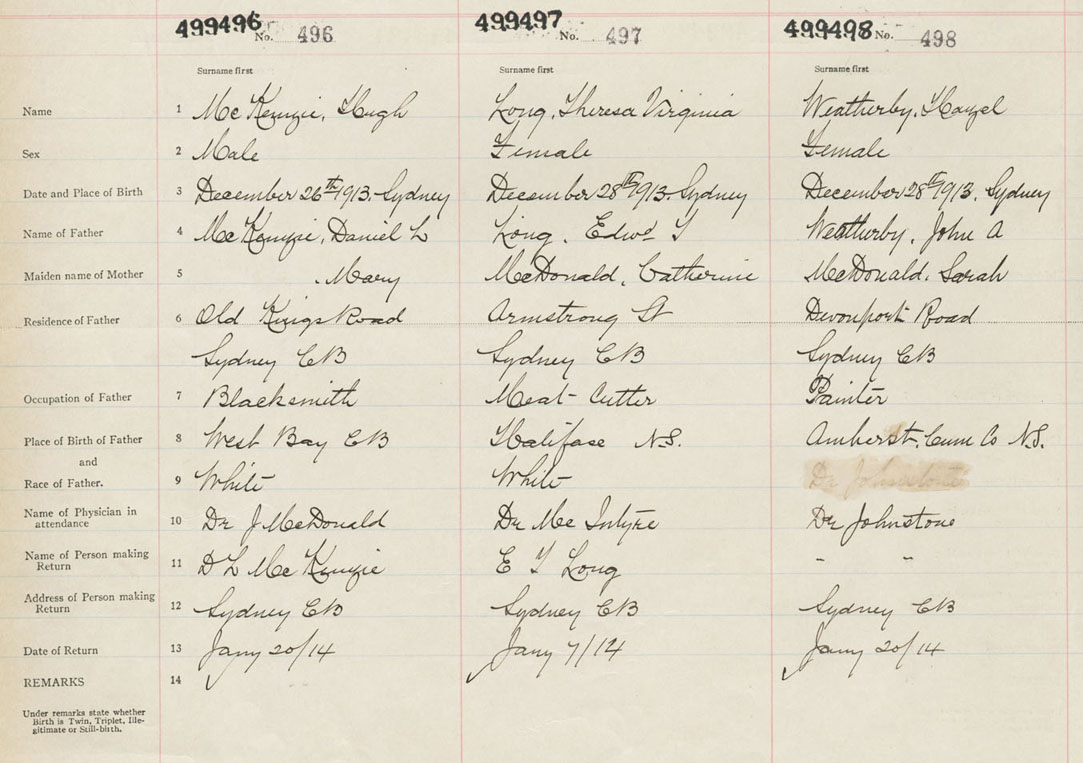 499496 No. 496 499497 No. 497 499498 No. 498
Surname first Surname first Surname first
Name 1 McKenzie, Hugh Long, Theresa Virginia Weatherby, Hazel
Sex 2 Male Female Female
Date and Place of Birth 3 December 26th 1913. Sydney December 28th 1913. Sydney December 28th 1913. Sydney
Name of Father 4 McKenzie, Daniel L Long, Edwd T Weatherby, John A
Maiden name of Mother 5 , Mary McDonald, Catherine McDonald, Sarah
Residence of Father 6 Old Kings Road Armstrong St Devonport Road
Sydney CB Sydney CB Sydney CB
Occupation of Father 7 Blacksmith Meat-Cutter Painter
Place of Birth of Father 8 West Bay CB Halifax N.S. Amherst, Cum Co N.S.
and
Race of Father. 9 White White Dr Johnstone
Name of Physician in
attendance 10 Dr J McDonald Dr McIntyre Dr Johnstone
Name of Person making
Return 11 D L McKenzie E T Long " "
Address of Person making
Return 12 Sydney CB Sydney CB Sydney CB
Date of Return 13 Jany 20/14 Jany 7/14 Jany 20/14
REMARKS 14
Under remarks state whether
Birth is Twin, Triplet, Ille-
gitimate or Still-birth.